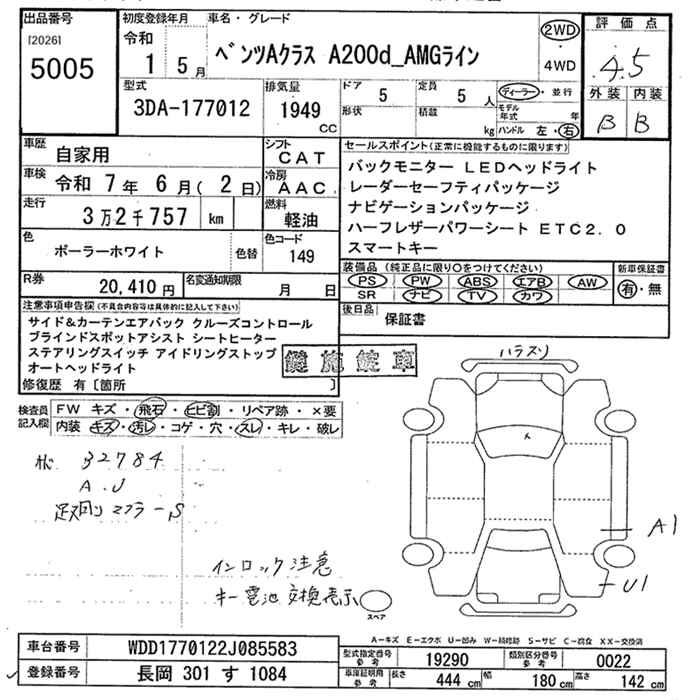 出品番号
[2026]
5005
初度登録年月
令和
1 5月
車名・グレード
ベンツAクラス A200d_AMGライン
2WD
・
4WD
評価点
4.5
外装 内装
B B
型式
3DA-177012
排気量
1949
CC
ドア
5
定員
5 人
形状
積載
kg
ディーラー・並行
モデル年式 年
ハンドル 左・右
車歴
自家用
シフト
CAT
車検
令和 7年 6月( 2日)
冷房
AAC
走行
3万2千757 km
燃料
軽油
色
ポーラーホワイト
色替
色コード
149
R券
20,410円
名変通知期限
月 日
セールスポイント(正常に機能するものに限ります)
バックモニター LEDヘッドライト
レーダーセーフティパッケージ
ナビゲーションパッケージ
ハーフレザーパワーシート ETC2.0
スマートキー
装備品 (純正品に限り○をつけてください)
PS PW ABS エアB AW
SR ナビ TV カワ
新車保証書
有・無
後日品
保証書
注意事項申告欄(不具合内容等は具体的に記入して下さい)
サイド&カーテンエアバック クルーズコントロール
ブラインドスポットアシスト シートヒーター
ステアリングスイッチ アイドリングストップ
オートヘッドライト
修復歴 有〔箇所 〕
鍵施錠車
検査員記入欄
FW キズ・飛石・ヒビ割・リペア跡・×要
内装 キズ・汚レ・コゲ・穴・スレ・キレ・破レ
32784
A.U
足廻り マフラーS
インロック注意
キー電池交換表示
ハラスリ
A1
U1
スペア
A-キズ E-エクボ U-凹み W-補修跡 S-サビ C-腐食 XX-交換済
車台番号
WDD1770122J085583
登録番号
長岡 301 す 1084
型式指定番号
参考
19290
類別区分番号
参考
0022
車庫証明用
参考
長さ
444 cm
幅
180 cm
高さ
142 cm